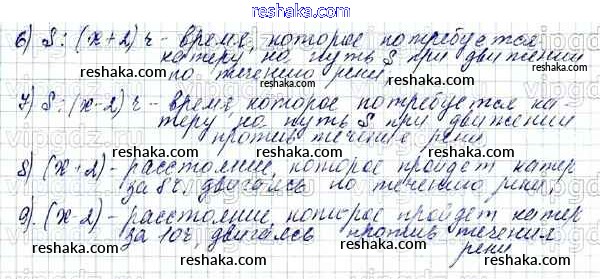 reshaka.com
6) S : (x + 2) ч - время, которое потребуется
катеру на путь S при движении
reshaka.com reshaka.com
по течению реки.
7) S : (x - 2) ч - время, которое потребуется ка-
reshaka.com reshaka.com
теру на путь S при движении
против течение реки
reshaka.com reshaka.com
8) (x + 2) - расстояние, которое пройдет катер
за 8ч, двигаясь по течению реки.
reshaka.com reshaka.com
9). (x - 2) - расстояние, которое пройдет катер
reshaka.com reshaka.com
за 10ч, двигаясь против течения
реки
reshaka.com reshaka.com